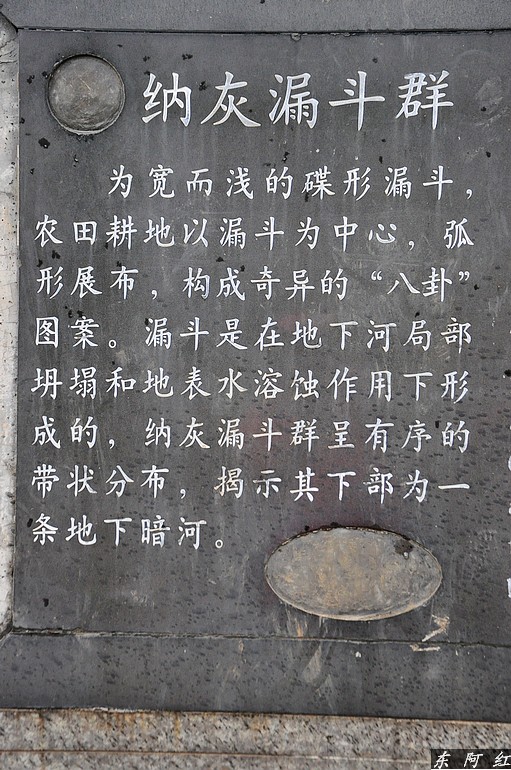 纳灰漏斗群
为宽而浅的碟形漏斗，
农田耕地以漏斗为中心，弧
形展布，构成奇异的“八卦”
图案。漏斗是在地下河局部
坍塌和地表水溶蚀作用下形
成的，纳灰漏斗群呈有序的
带状分布，揭示其下部为一
条地下暗河。
东阿红